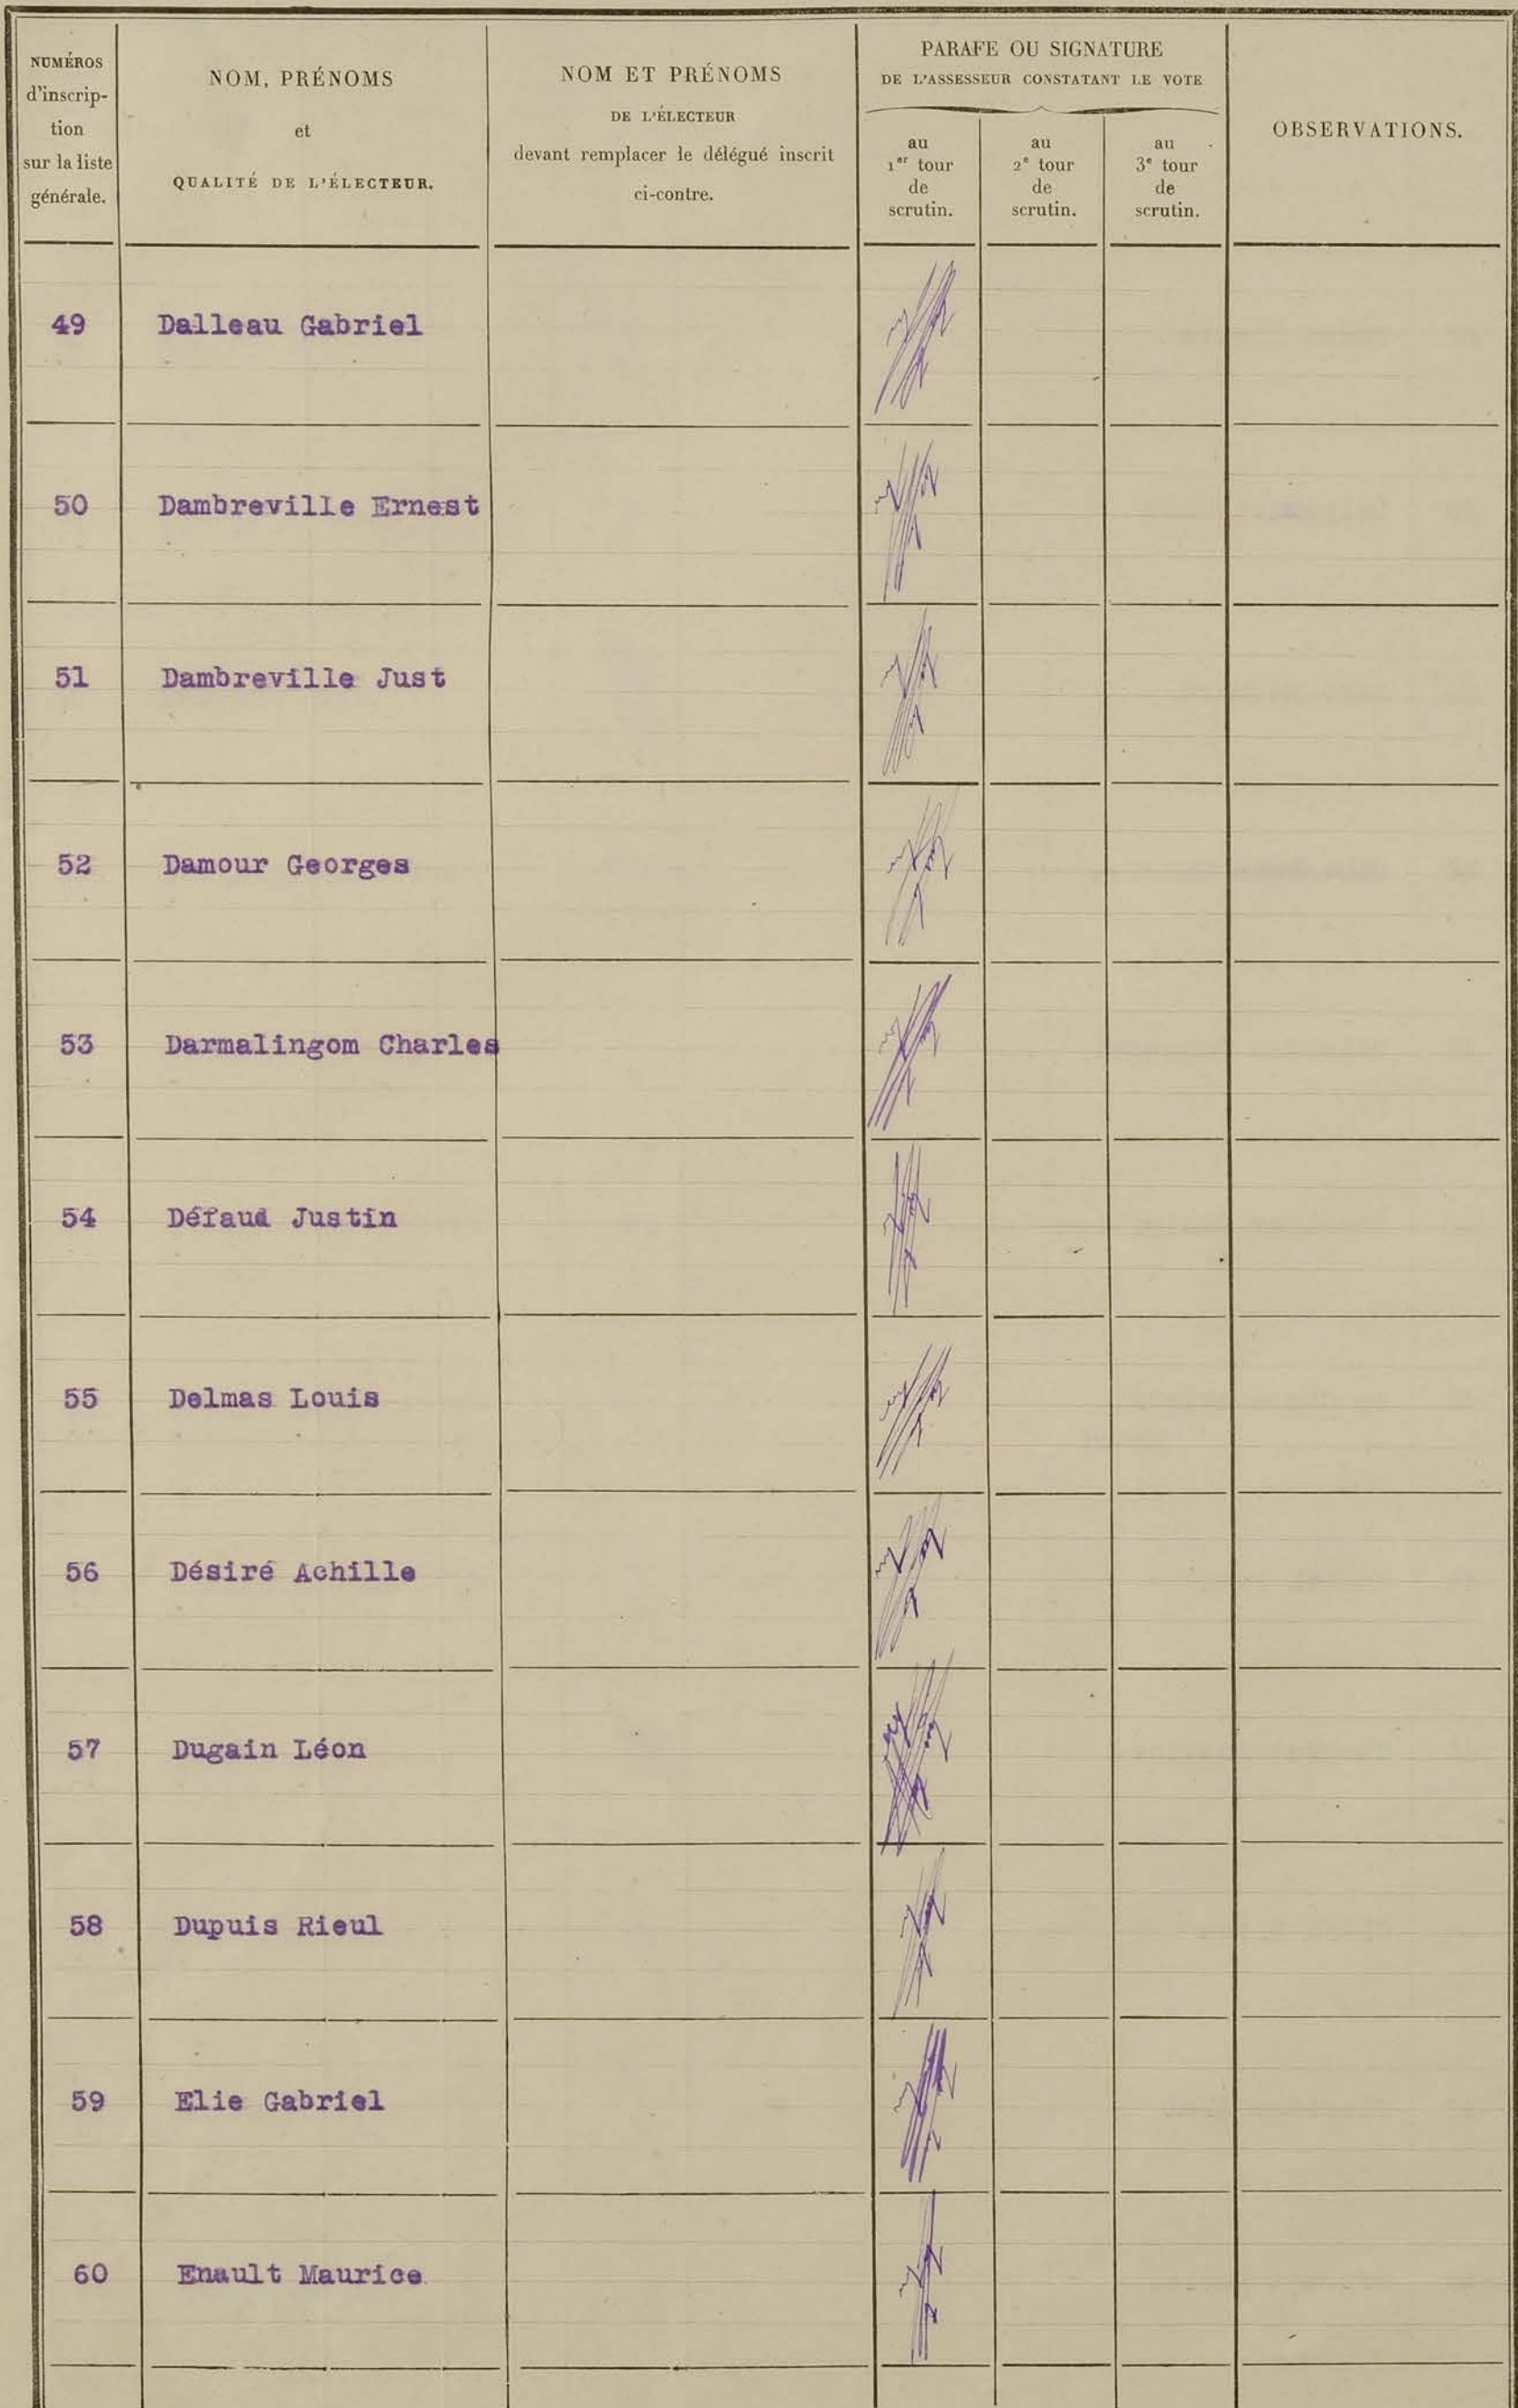 NUMÉROS
d'inscrip-
tion
sur la liste
générale.
NOM, PRÉNOMS
et
QUALITÉ DE L'ÉLECTEUR.
NOM ET PRÉNOMS
DE L'ÉLECTEUR
devant remplacer le délégué inscrit
ci-contre.
PARAFE OU SIGNATURE
DE L'ASSESSEUR CONSTATANT LE VOTE
au
1er tour
de
scrutin.
au
2e tour
de
scrutin.
au
3e tour
de
scrutin.
OBSERVATIONS.
49 Dalleau Gabriel
50 Dambreville Ernest
51 Dambreville Just
52 Damour Georges
53 Darmalingom Charles
54 Défaud Justin
55 Delmas Louis
56 Désiré Achille
57 Dugain Léon
58 Dupuis Rieul
59 Elie Gabriel
60 Enault Maurice